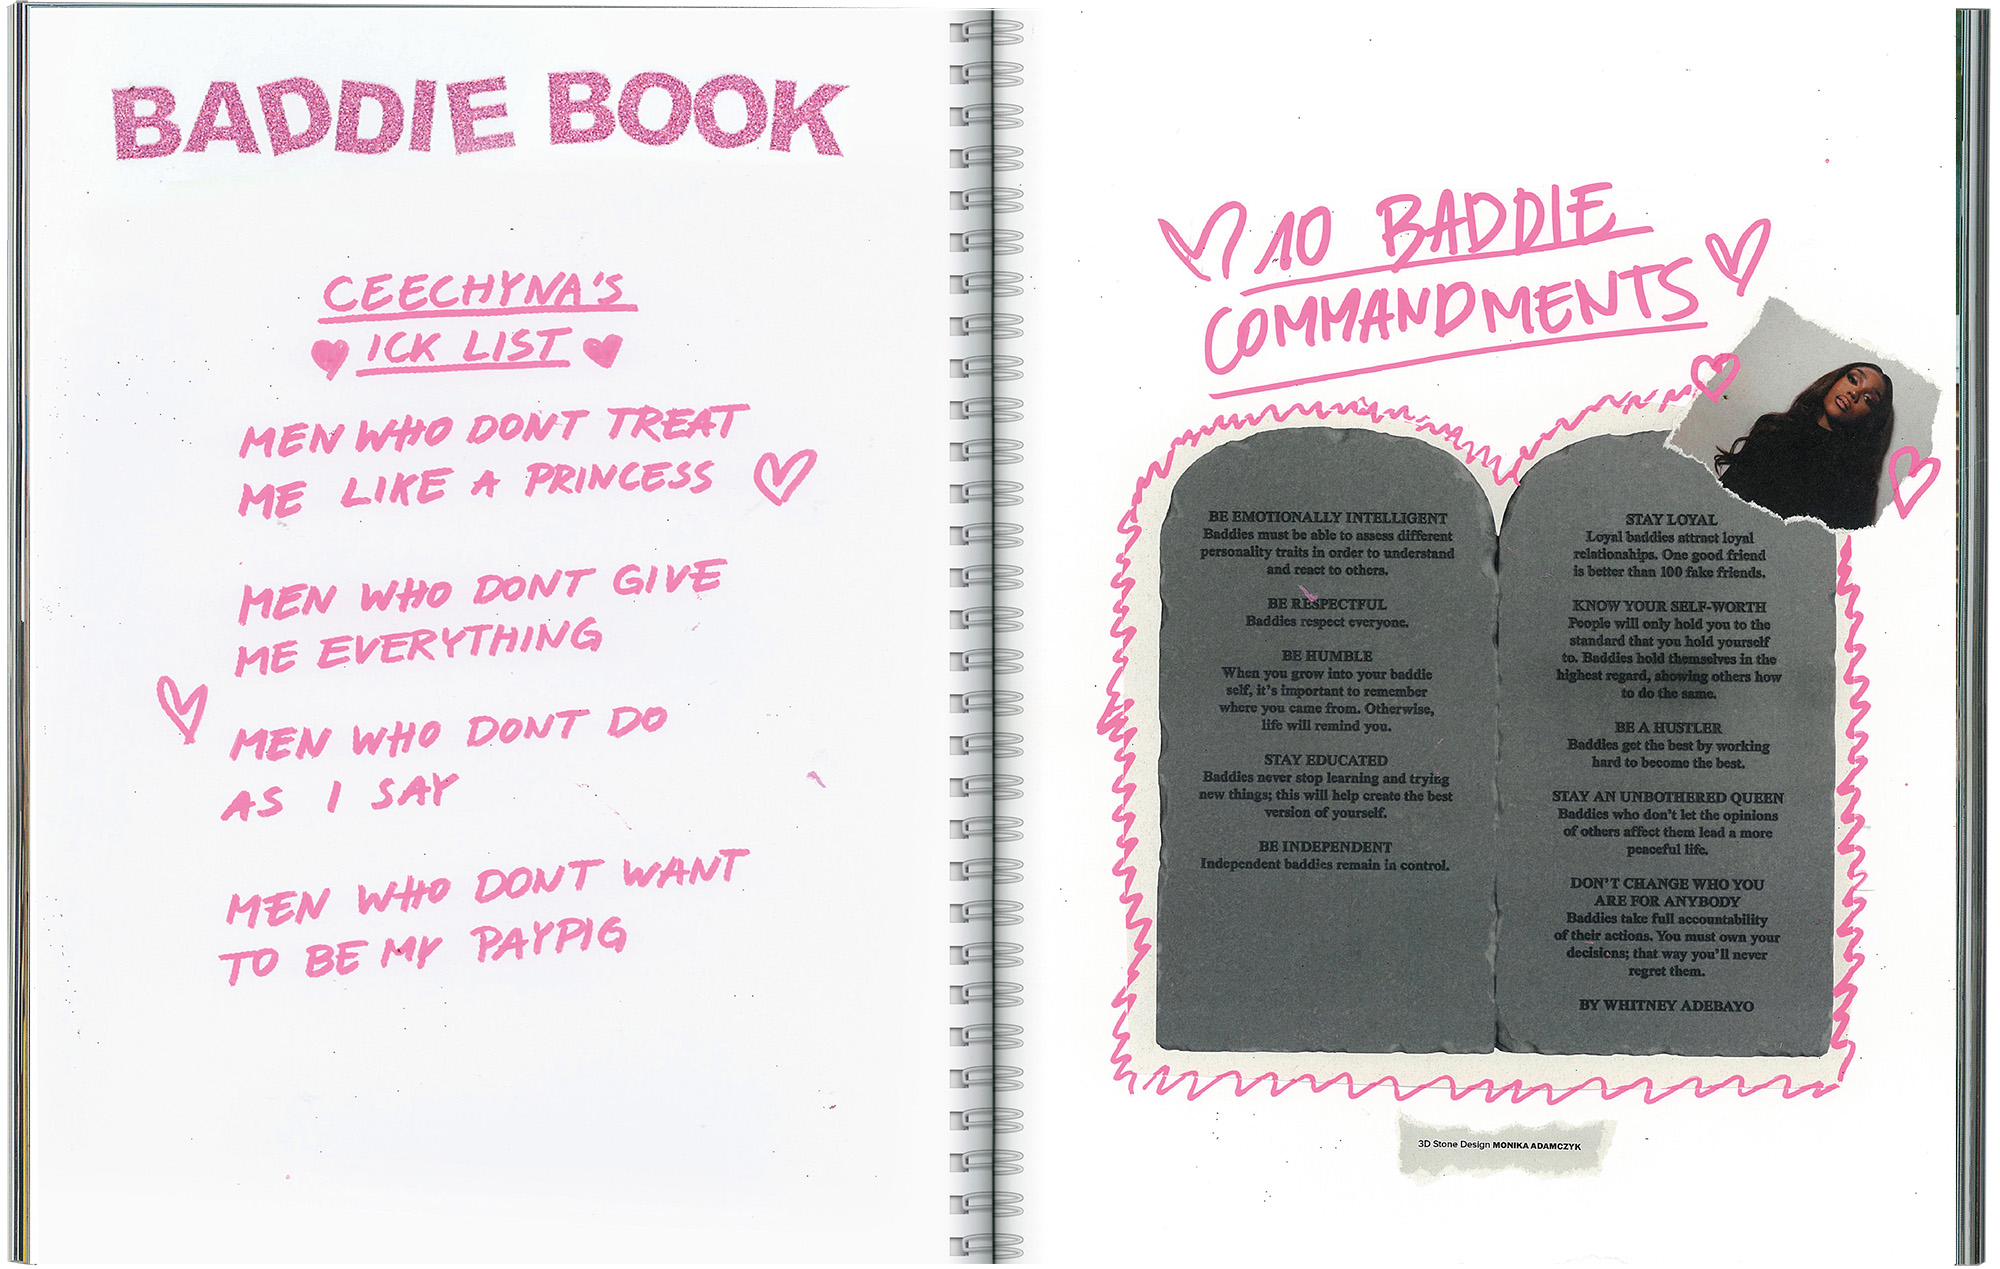 BADDIE BOOK
CEECHYNA'S
ICK LIST
MEN WHO DONT TREAT
ME LIKE A PRINCESS
MEN WHO DONT GIVE
ME EVERYTHING
MEN WHO DONT DO
AS I SAY
MEN WHO DONT WANT
TO BE MY PAYPIG
10 BADDIE
COMMANDMENTS
BE EMOTIONALLY INTELLIGENT
Baddies must be able to assess different
personality traits in order to understand
and react to others.
BE RESPECTFUL
Baddies respect everyone.
BE HUMBLE
When you grow into your baddie
self, it's important to remember
where you came from. Otherwise,
life will remind you.
STAY EDUCATED
Baddies never stop learning and trying
new things; this will help create the best
version of yourself.
BE INDEPENDENT
Independent baddies remain in control.
STAY LOYAL
Loyal baddies attract loyal
relationships. One good friend
is better than 100 fake friends.
KNOW YOUR SELF-WORTH
People will only hold you to the
standard that you hold yourself
to. Baddies hold themselves in the
highest regard, showing others how
to do the same.
BE A HUSTLER
Baddies get the best by working
hard to become the best.
STAY AN UNBOTHERED QUEEN
Baddies who don't let the opinions
of others affect them lead a more
peaceful life.
DON'T CHANGE WHO YOU
ARE FOR ANYBODY
Baddies take full accountability
of their actions. You must own your
decisions; that way you'll never
regret them.
BY WHITNEY ADEBAYO
3D Stone Design MONIKA ADAMCZYK